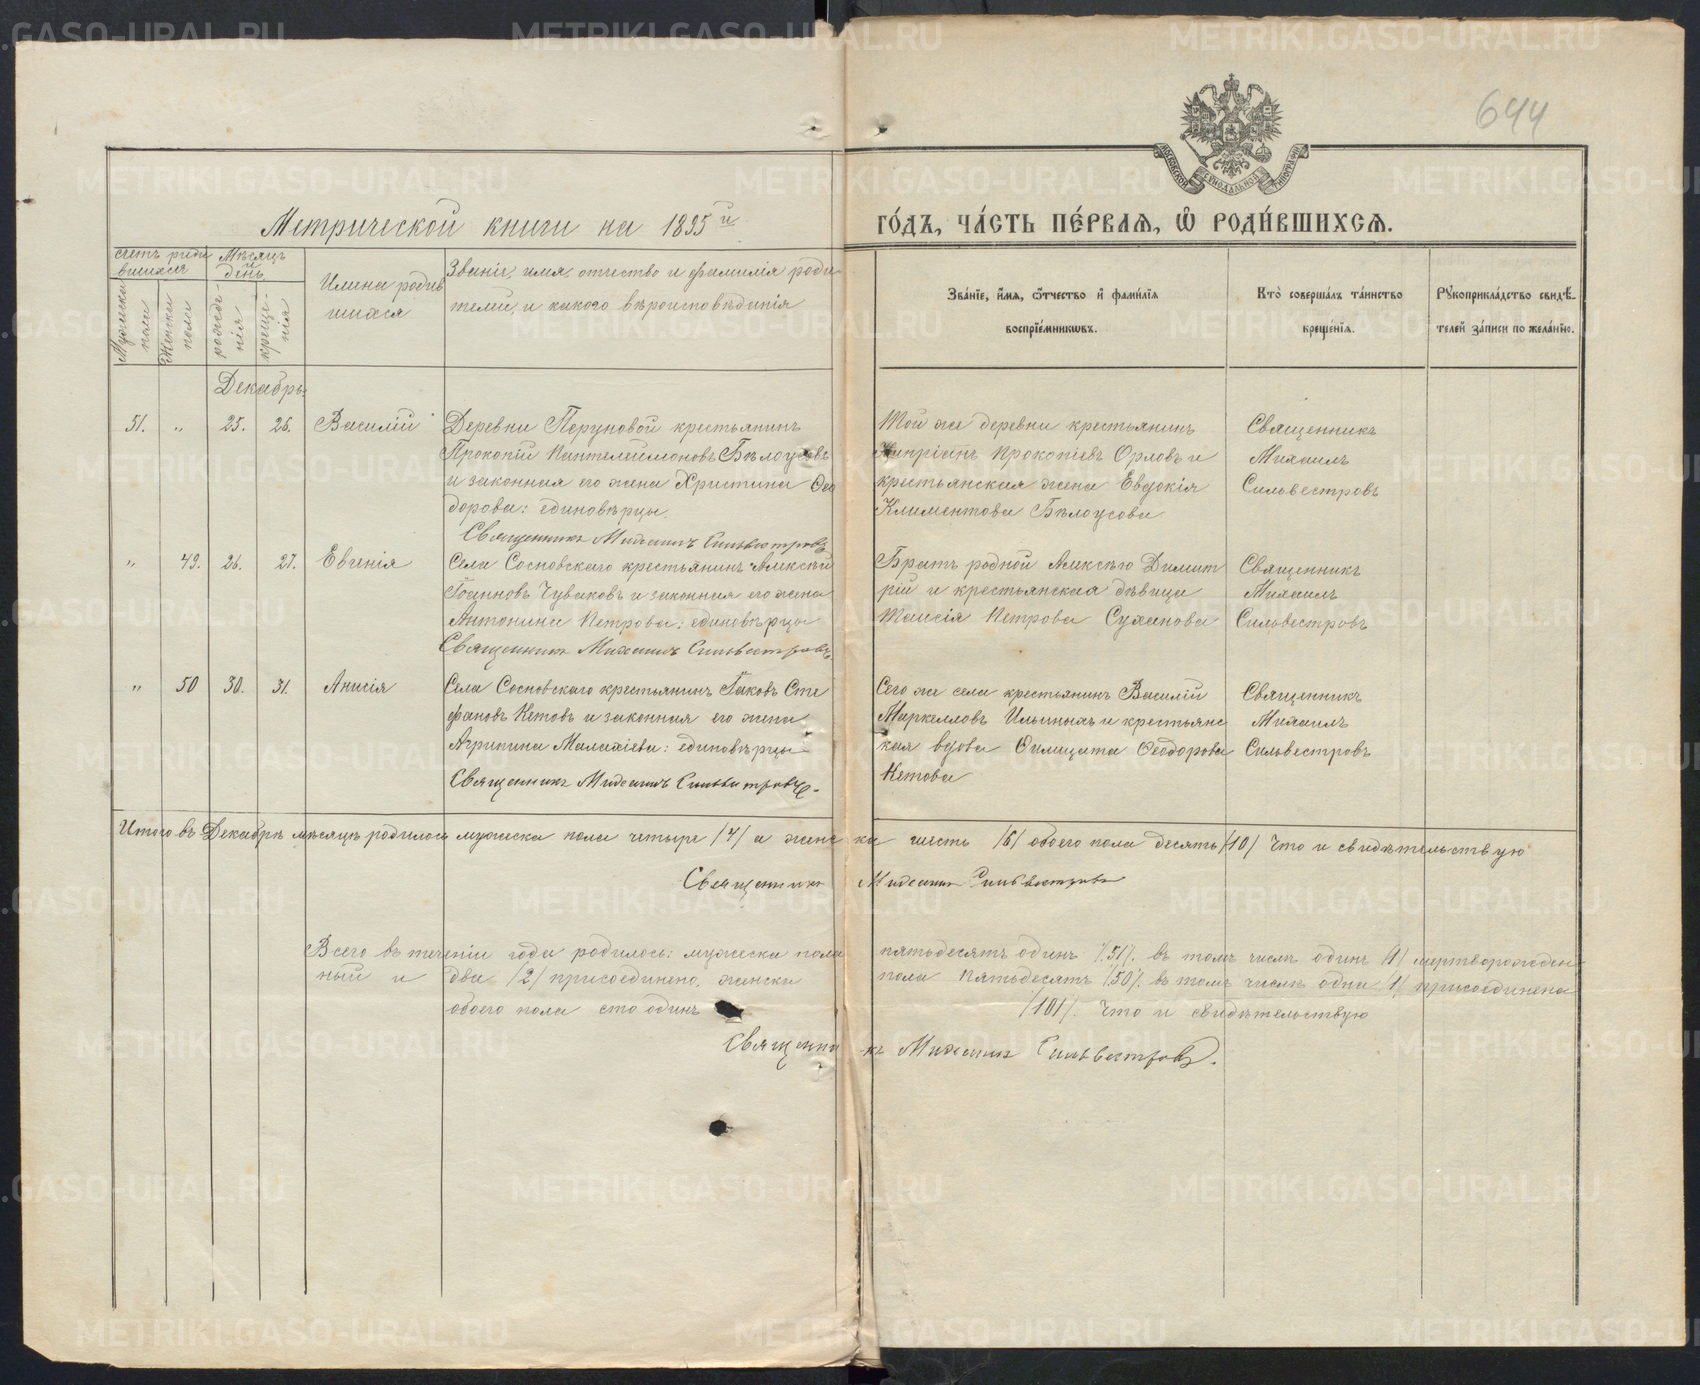 644
МОСКОВСКОЙ СѴНОДАЛЬНОЙ ТИПОГРАФІИ
Метрической книги на 1895й
ГО́ДЪ, ЧА́СТЬ ПЕ́РВАЯ, Ѽ РОДИ́ВШИХСЯ.
счетъ роди
вшихся
Мѣсяцъ
и
день
Имена родив
шихся
Званіе, имя, отчество и фамилія роди
телей, и какого вѣроисповѣданія
Мужеска
пола
Женска
пола
рожде-
нія
креще-
нія
Зва́нїе, и́мя, ѻ́тчество и фами́лїя
воспрїе́мниковъ.
Кто̀ соверша́лъ та́инство
креще́нїя.
Рꙋкоприкла́дство свидѣ́-
телей за́писи по жела́нїю.
Декабрь
51. „ 25. 26. Василій Деревни Перуновой крестьянинъ
Прокопій Пантелеймоновъ Бѣлоусовъ
и законная его жена Христина Ѳео
дорова: единовѣрцы.
Священникъ Михаилъ Сильвестровъ
Той же деревни крестьянинъ
Кипріанъ Прокопіевъ Орловъ и
крестьянская жена Евдокія
Климентова Бѣлоусова
Священникъ
Михаилъ
Сильвестровъ
„ 49. 26. 27. Евгенія Села Сосновскаго крестьянинъ Алексѣй
Іоанновъ Чуваковъ и законная его жена
Антонина Петрова: единовѣрцы
Священникъ Михаилъ Сильвестровъ.
Братъ родной Алексѣю Димит
рій и крестьянская дѣвица
Таисія Петрова Суханова
Священникъ
Михаилъ
Сильвестровъ
„ 50 30. 31. Анисія Села Сосновскаго крестьянинъ Іаковъ Сте
фановъ Кетовъ и законная его жена
Агрипина Малахіева: единовѣрцы
Священникъ Михаилъ Сильвестровъ.
Сего же села крестьянинъ Василій
Маркелловъ Ильиныхъ и крестьянс
кая вдова Ѳеодорова
Кетова
Священникъ
Михаилъ
Сильвестровъ
Итого въ Декабрѣ мѣсяцѣ родилось мужеска пола четыре /4/ а женска шесть /6/ обоего пола десять /10/ Что и свидѣтельствую
Священникъ Михаилъ Сильвестровъ
Всего въ теченіи года родилось: мужеска пола пятьдесятъ одинъ /51/. въ томъ числѣ одинъ /1/ мертворожден-
ный и два /2/ присоединено, женска пола пятьдесятъ /50/. въ томъ числѣ одна /1/ присоединена
обоего пола сто одинъ /101/. Что и свидѣтельствую
Священникъ Михаилъ Сильвестровъ.
METRIKI.GASO-URAL.RU